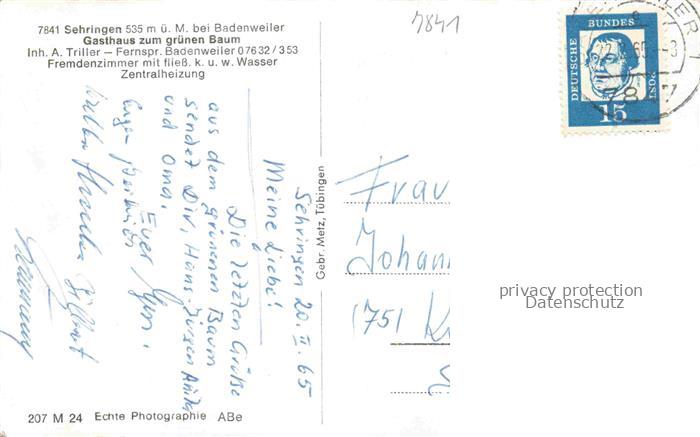 7841
7841 Sehringen 535 m ü. M. bei Badenweiler
Gasthaus zum grünen Baum
Inh. A. Triller – Fernspr. Badenweiler 07632/353
Fremdenzimmer mit fließ. k. u. w. Wasser
Zentralheizung
DEUTSCHE BUNDES POST
15
7847
Sehringen 20. II. 65
Meine Liebe!
Die letzten Grüße
aus dem grünenen Baum
sendet Dir, Hans-Jürgen Anita
und Oma.
Euer
Gebr. Metz, Tübingen
Frau
Johann
(751)
privacy protection
Datenschutz
207 M 24 Echte Photographie ABe